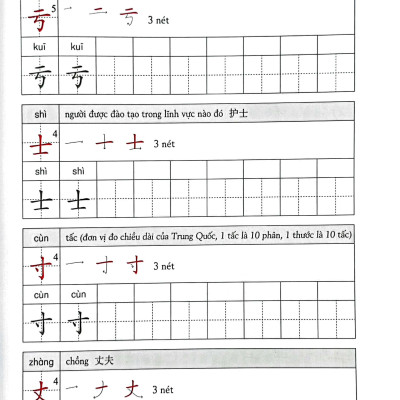 亏 5 一 二 亏 3 nét
kuī kuī
亏 亏
shì người được đào tạo trong lĩnh vực nào đó 护士
士 4 一 十 士 3 nét
shì shì
士 士
cùn tấc (đơn vị đo chiều dài của Trung Quốc, 1 tấc là 10 phân, 1 thước là 10 tấc)
寸 4 一 寸 寸 3 nét
cùn cùn
寸 寸
zhàng chồng 丈夫
丈 4 一 ナ 丈 3 nét